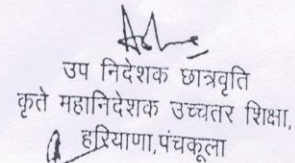 उप निदेशक छात्रवृति
कृते महानिदेशक उच्चतर शिक्षा,
हरियाणा, पंचकूला